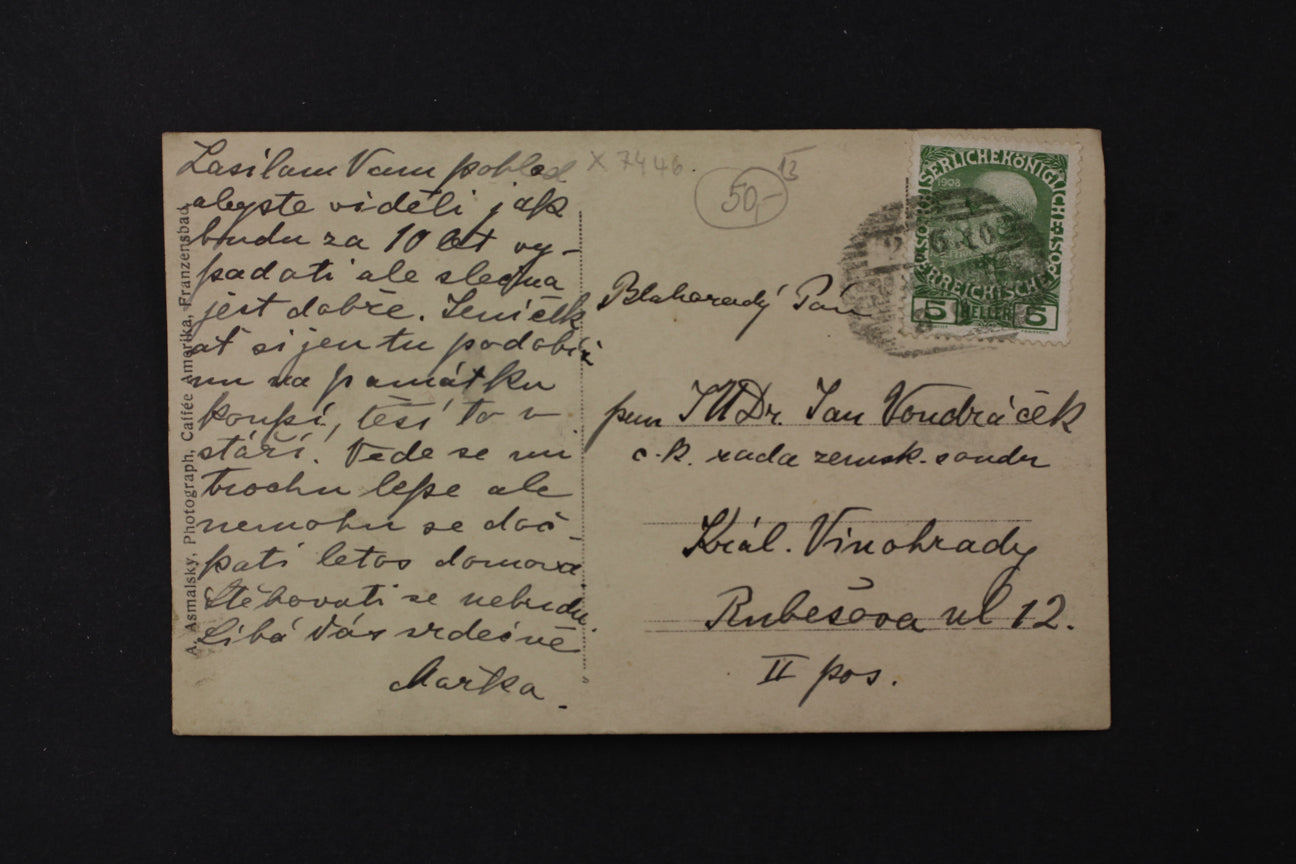 Zasílam Vam pohled
abyste viděli jak
budu za 10 let vy-
padati ale slečna
jest dobře. Jeníček
ať si jen tu podobiz
nu na památku
koupí, těší to v
stáří. Vede se mi
trochu lépe ale
nemohu se doč-
kati letos domova
Stěhovati se nebudu.
Líbá Vás srdečně
Mařka.
A. Asmalsky, Photograph, Caffée Amerika, Franzensbad.
X 7446.
50,-
13
KAISERLICHEKÖNIGLICHE ÖSTERREICHISCHE POST
1908
5 HELLER 5
Blahorodý Pán
pan JUDr. Jan Vondráček
c.k. rada zemsk. soudu
Král. Vinohrady
Rubešova ul 12.
II pos.